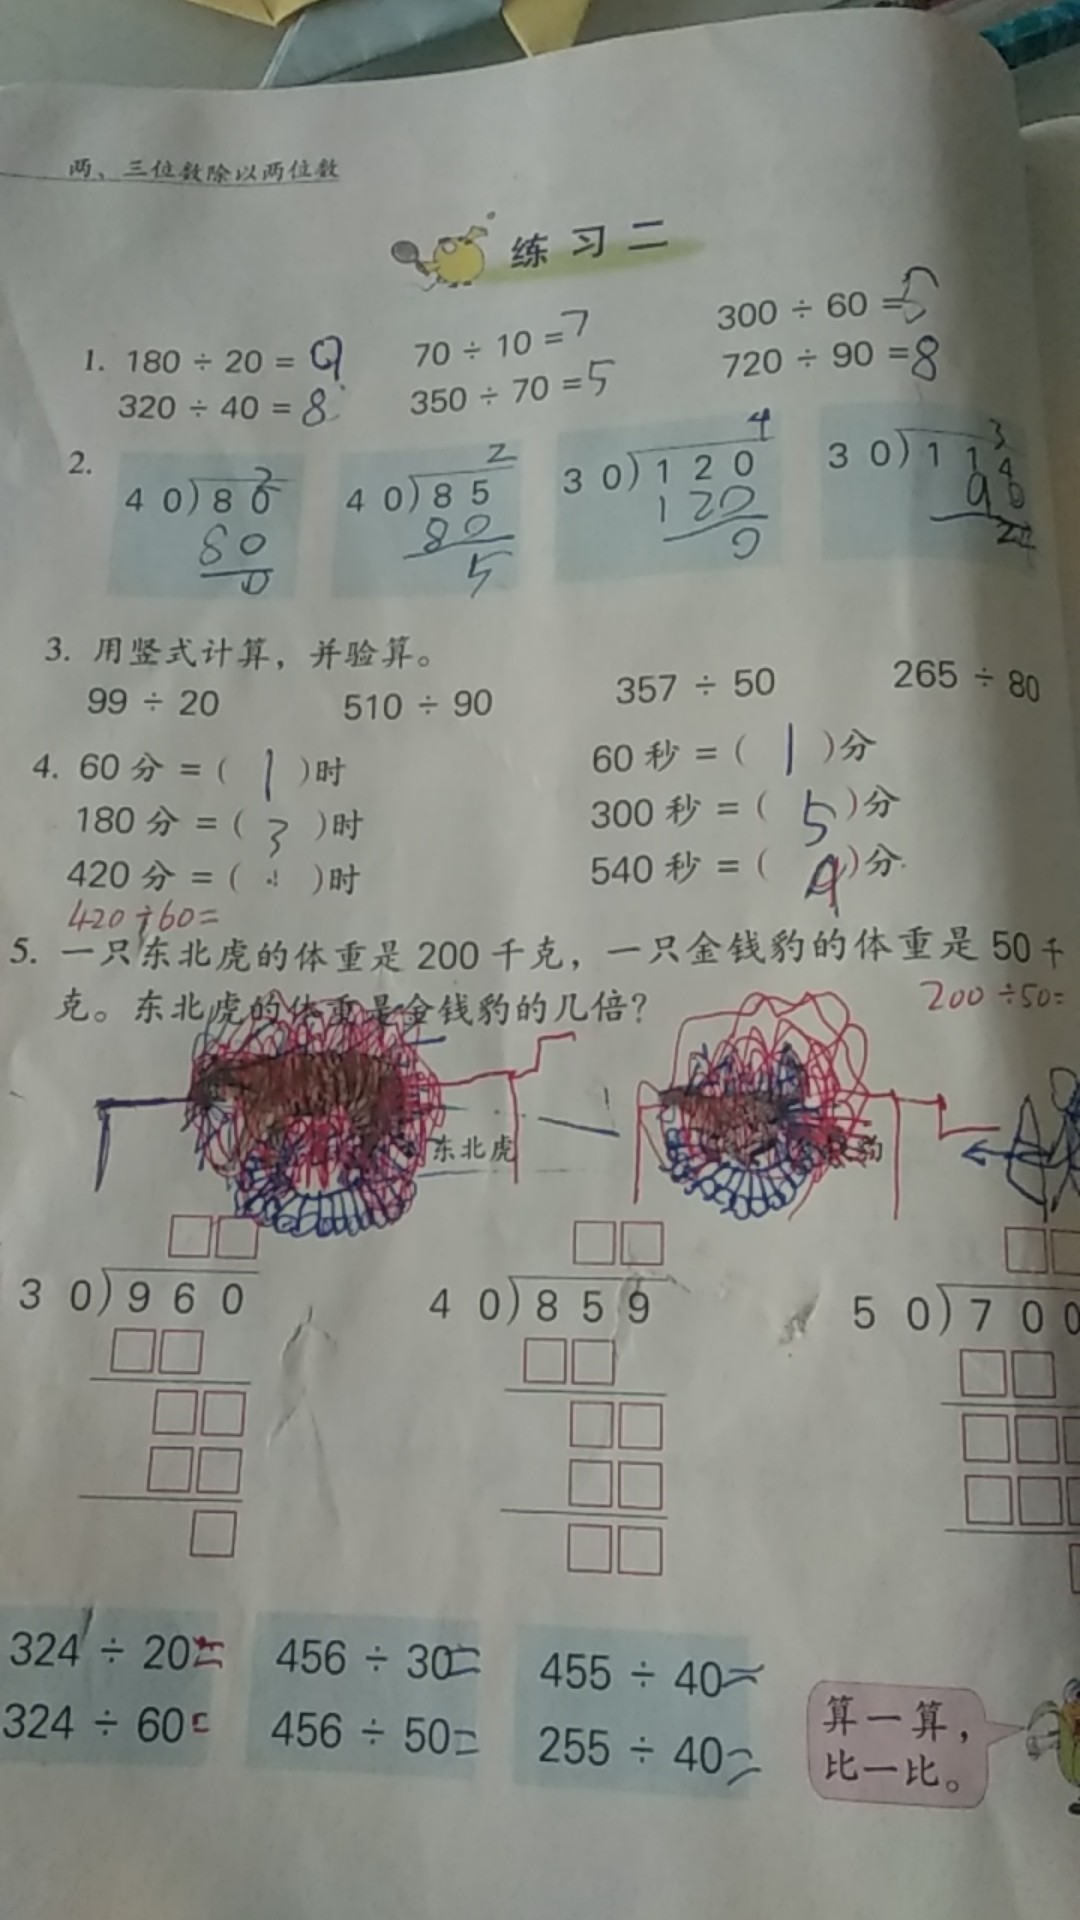 两、三位数除以两位数
练习二
1. 180 ÷ 20 = 9 70 ÷ 10 = 7 300 ÷ 60 = 5
320 ÷ 40 = 8 350 ÷ 70 = 5 720 ÷ 90 = 8
2.
2 2 4 3
40)80 40)85 30)120 30)114
80 80 120 90
0 5 0 24
3. 用竖式计算，并验算。
99 ÷ 20 510 ÷ 90 357 ÷ 50 265 ÷ 80
4. 60分 =( 1 )时 60秒 =( 1 )分
180分 =( 3 )时 300秒 =( 5 )分
420分 =( )时 540秒 =( 9 )分
420÷60=
5. 一只东北虎的体重是200千克，一只金钱豹的体重是50千
克。东北虎的体重是金钱豹的几倍？ 200÷50=
东北虎 豹
□□ □□ □□
30)960 40)859 50)700
□□ □□ □□
□□ □□ □□□
□□ □□ □□□
□ □□ □
324 ÷ 20= 456 ÷ 30= 455 ÷ 40=
324 ÷ 60= 456 ÷ 50= 255 ÷ 40=
算一算，
比一比。